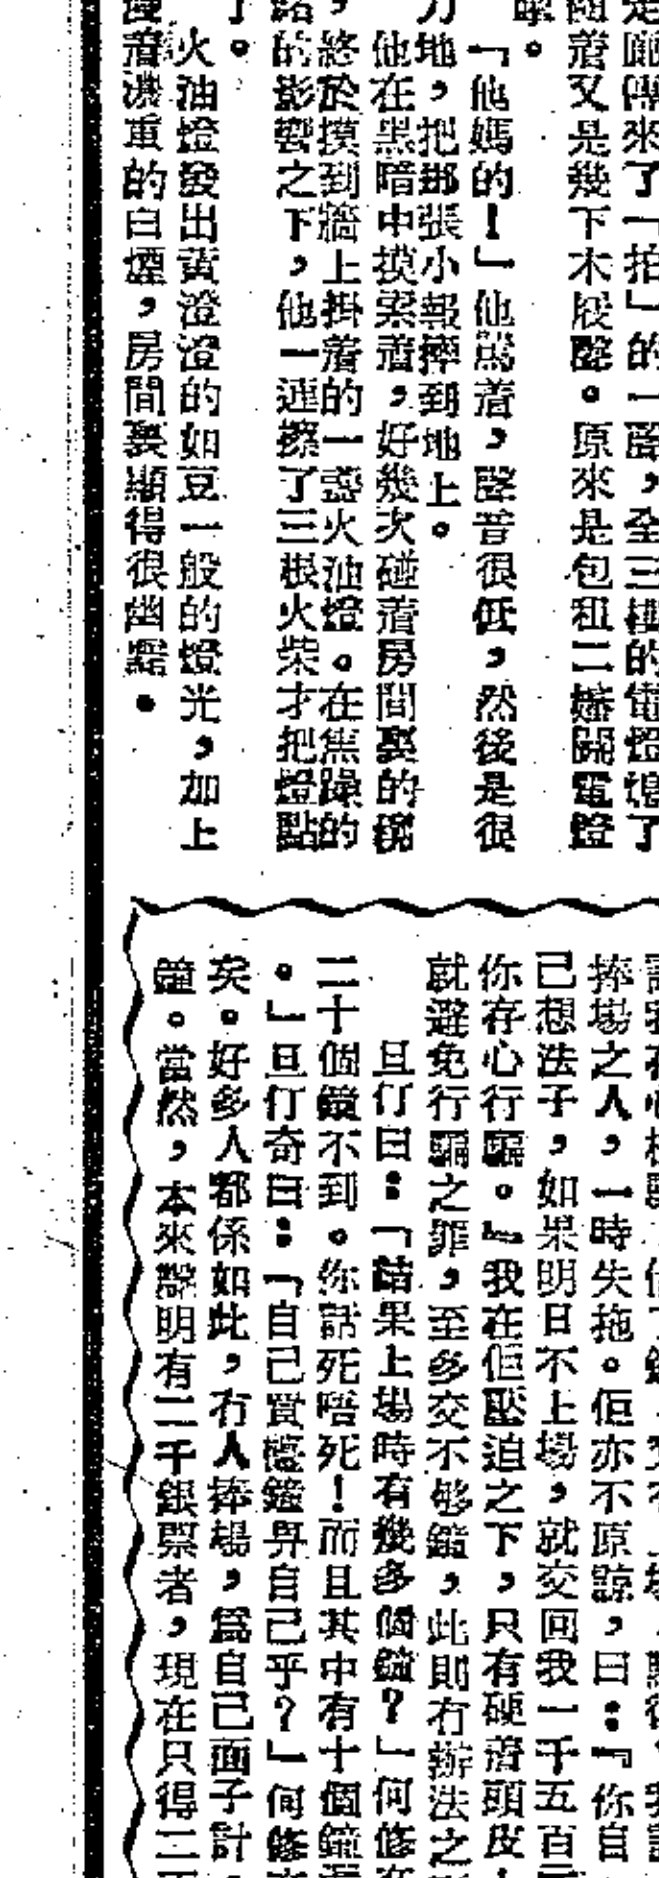 走廊傳來了「拍」的一聲，全三樓的電燈熄了
隨着又是幾下木屐聲。原來是包租二嬸關電燈
。
「他媽的！」他罵着，聲音很低，然後是很
力地，把那張小報摔到地上。
他在黑暗中摸索着，好幾次碰着房間裏的
，終於摸到牆上掛着的一盞火油燈。在焦躁的
的影響之下，他一連擦了三根火柴才把燈點
了。
火油燈發出黃澄澄的如豆一般的燈光，加上
着濃重的白煙，房間裏顯得很幽黯。
捧場之人，一時失拖。佢亦不原諒，曰：『你自
己想法子，如果明日不上場，就交回我一千五百
你存心行騙。』我在佢壓迫之下，只有硬着頭皮
就避免行騙之罪，至多交不够鐘，此則冇辦法之
旦仃曰：「結果上場時有幾多個鐘？」何修
二十個鐘不到。你話死唔死！而且其中有十個鐘
。」旦仃奇曰：「自己買鐘畀自己乎？」何修
矣。好多人都係如此，冇人捧場，爲自己面子計，
鐘。當然，本來聲明有二千銀票者，現在只得二